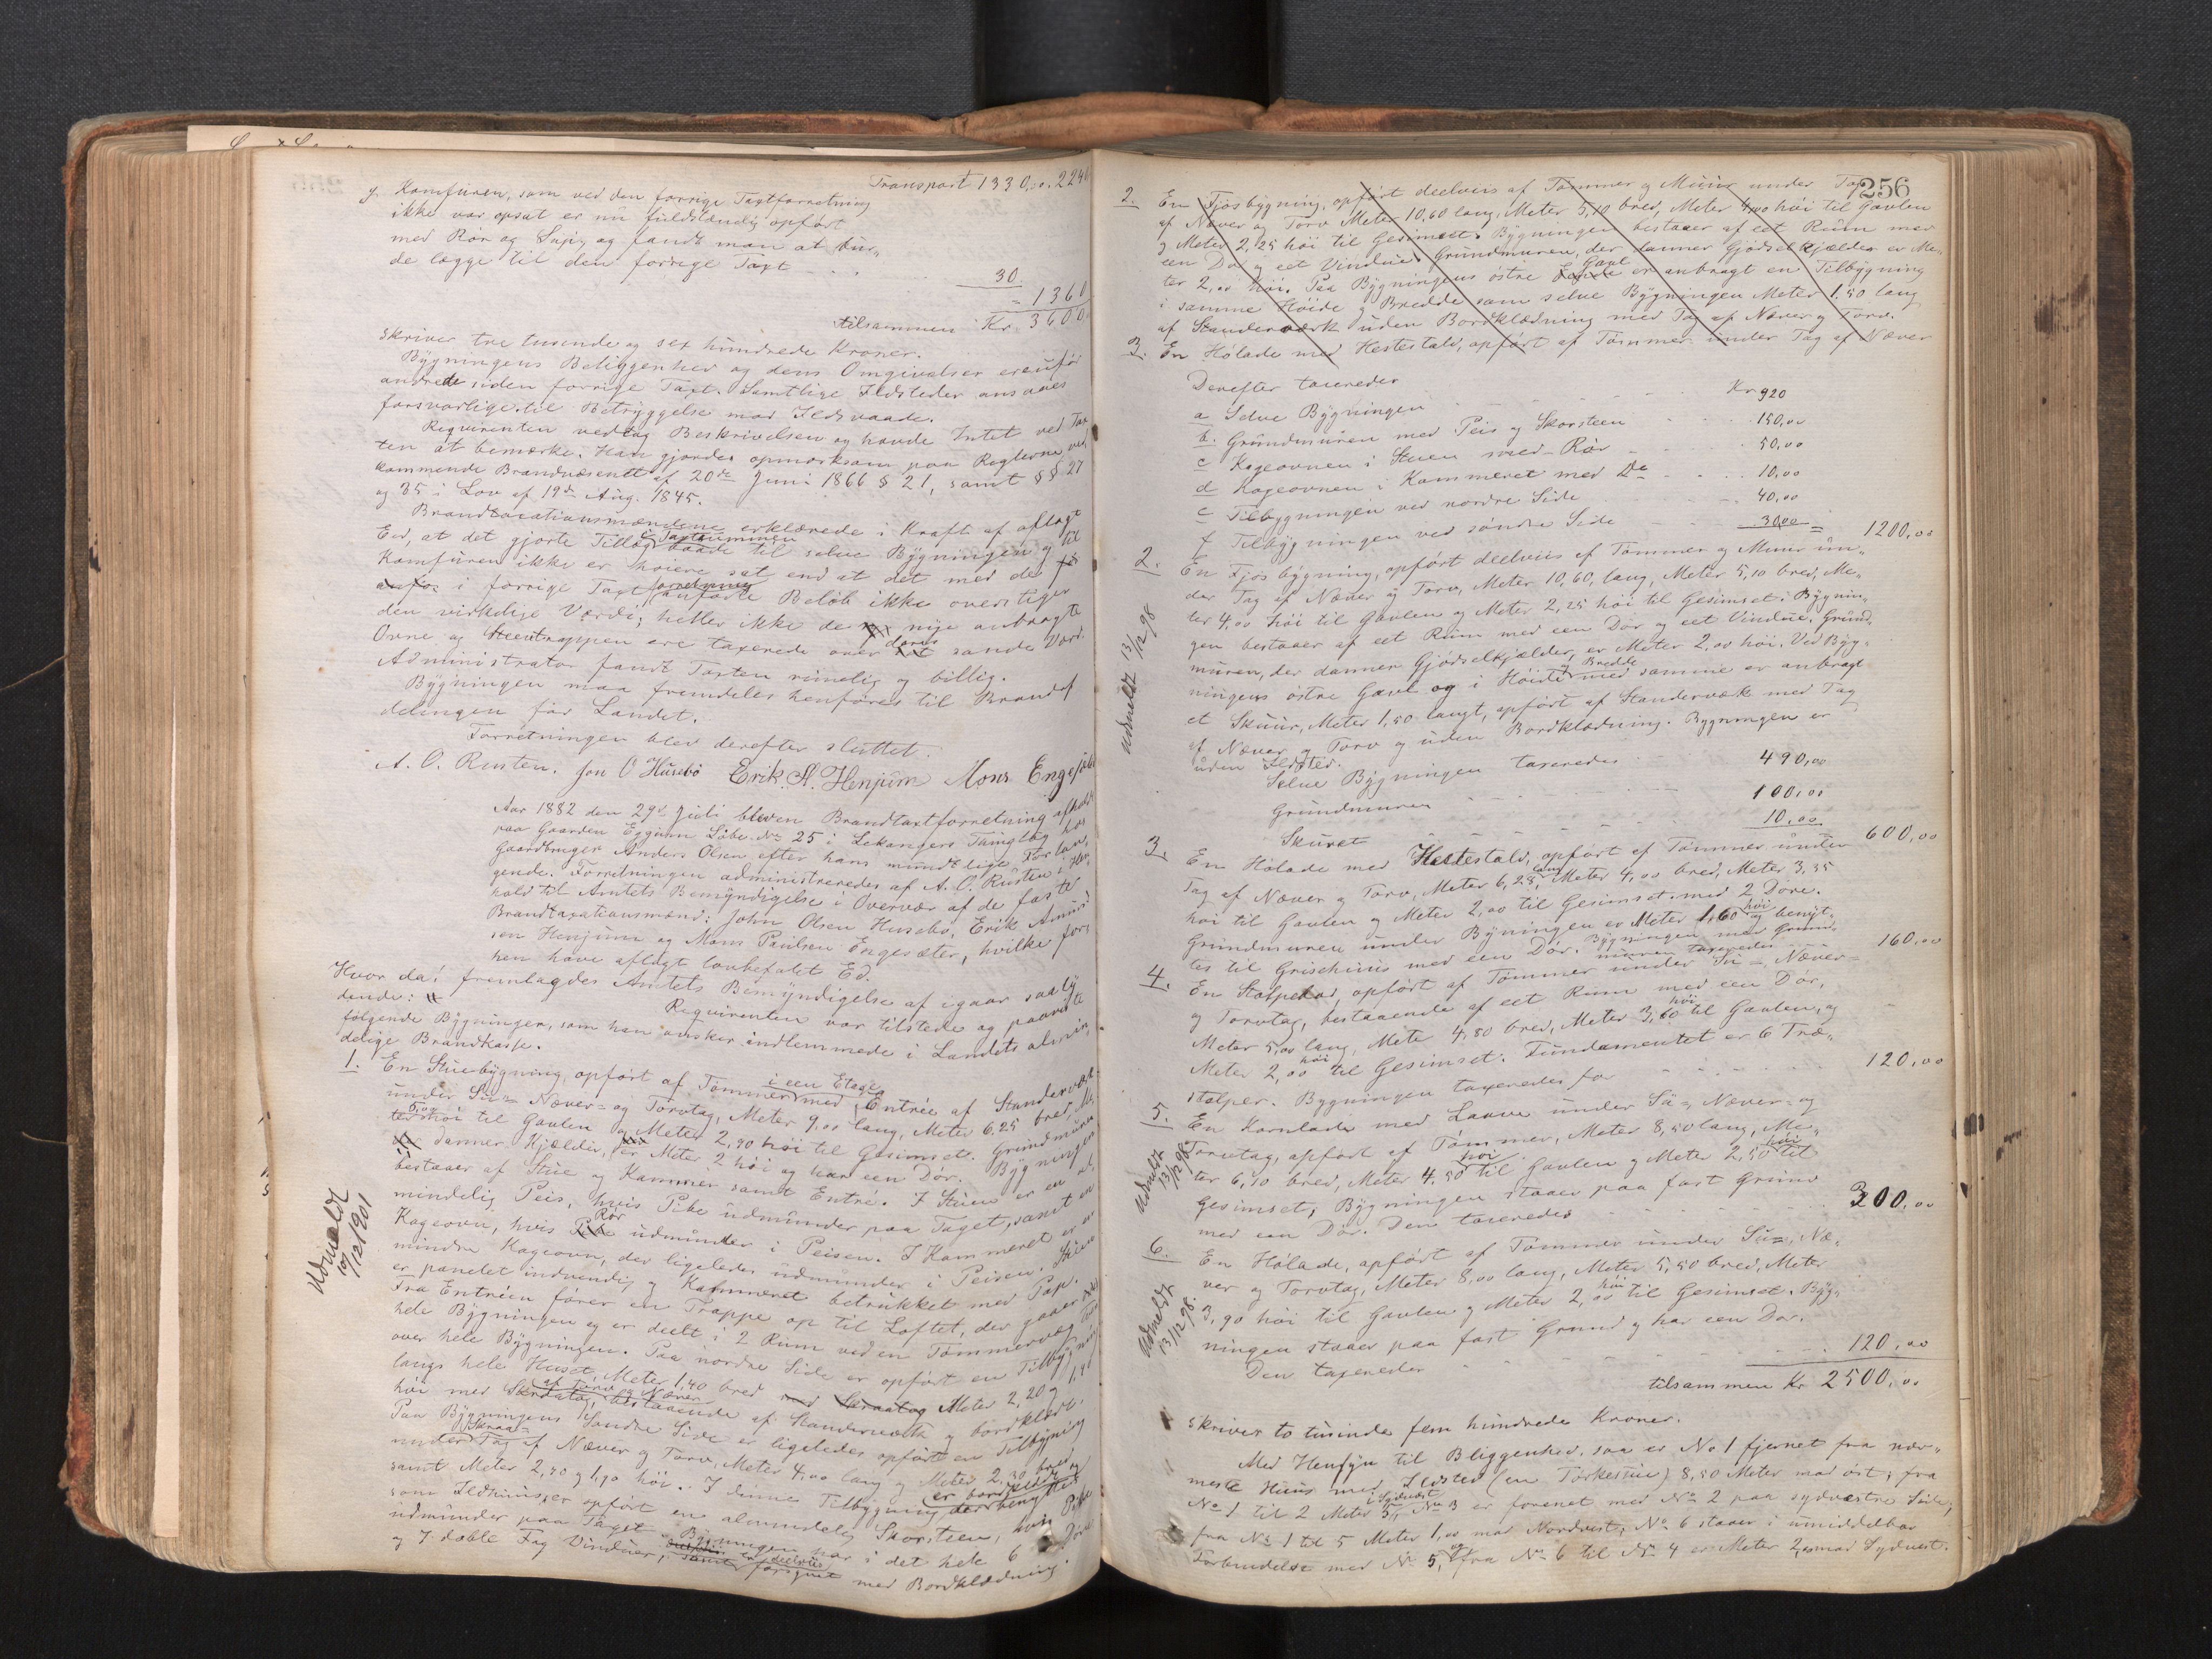 Transport 1330,00. 2240
g. Komfuren, som ved den forrige Taxtforretning
ikke var opsat er nu fuldstændig opført
med Rør og Supig og fandt man at bur-
de lægge til den forrige Taxt . .
30.
= 1360
tilsammen Kr. 3600
skriver tre tusende og sex hundrede Kroner.
Bygningens Beliggenhed og dens Omgivelser ere ufor
andrede siden forrige Taxt. Samtlige Ildsteder ansaaes
forsvarlige til Betryggelse mod Ildsvaade.
Requirenten vedtog Beskrivelsen og havde Intet ved Tax
ten at bemærke. Han gjordes opmærksom paa Reglerne ved
kommende Brandvæsenet af 20de Juni 1866 § 21, samt §§ 27
og 35 i Lov af 19de Aug. 1845.
Brandtaxationsmændene erklærede i Kraft af aflagt
Eed, at det gjorte Tillæg i Taxtsummen baade til selve Bygningen og til
Komfuren ikke er høiere sat end at det med det
i forrige Taxtforretning anførte Beløb ikke overstiger
den virkelige Værdi; heller ikke de nye anbragte
Ovne og Steentrappen ere taxerede over deres sande Værd.
Administrator fandt Taxten rimelig og billig.
Bygningen maa fremdeles henføres til Brandaf
delingen for Landet.
Forretningen blev derefter sluttet.
A. O. Rusten. Jon O Husebø Erik A. Henjum Mons Engesæter
Aar 1882 den 29de Juli blev en Brandtaxtforretning afholdt
paa Gaarden Eggum Løbe No 25 i Lekangers Thinglag hos
Gaardbruger Anders Olsen efter hans mundtlige Forlan-
gende. Forretningen administreredes af A. O. Rusten i Hen-
hold til Amtets Bemyndigelse i Overvær af de faste
Brandtaxationsmænd: John Olsen Husebø, Erik Amund
sen Henjum og Mons Paulsen Engesæter, hvilke for-
hen have aflagt lovbefalet Ed.
Hvor da: fremlagdes Amtets Bemyndigelse af igaar saaly
dende:
Requirenten var tilstede og paaviste
følgende Bygninger, som han ønsker indlemmede i Landets almin-
delige Brandkasse.
1. En Stuebygning, opført af Tømmer i een Etage med Entrée af Standerværk
under Su- Næver- og Torvtag, Meter 9,00 lang, Meter 6.25 bred, Me-
ter 5,00 høi til Gavlen og Meter 2,90 høi til Gesimset. Grundmuren
danner Kjælder, er Meter 2 høi og har een Dør. Bygningen
bestaaer af Stue og Kammer samt Entré. I Stuen er en al-
mindelig Peis, hvis Pibe udmunder paa Taget, samt en
Kageovn, hvis Rør udmunder i Peisen. I Kammeret er en
mindre Kageovn, der ligeledes udmunder i Peisen. Stuen
er panelet indvendig og Kammeret betrukket med Pap.
Fra Entréen fører en Trappe op til Loftet, der gaaer over
hele Bygningen og er deelt i 2 Rum ved en Tømmervæg
over hele Bygningen. Paa nordre Side er opført en Tilbygning
langs hele Huset, Meter 1,40 bred med Skraatag Meter 2,20 og 1,90
høi med Skraatag af Torv og Næver, bestaaende af Standerværk og bordklædt.
Paa Bygningens Søndre Side er ligeledes opført en Tilbygning
under Skraa- Tag af Næver og Torv, Meter 4,00 lang og Meter 2,30 bred
samt Meter 2,70 og 1,90 høi. I denne Tilbygning, der er bordklædt og benyttes
som Ildhuus, er opført en almindelig Skorsteen, hvis Pibe
udmunder paa Taget. Bygningen har i det hele 6 Døre
og 7 doble Fag Vinduer, samt er deelviis forsynet med Bordklædning.
Udmeldt
10/12 1901
256
2. En Fjøsbygning, opført deelviis af Tømmer og Muur under Tag
af Næver og Torv Meter 10,60 lang, Meter 5,10 bred, Meter 4,00 høi til Gavlen
og Meter 2,25 høi til Gesimset. Bygningen bestaaer af eet Rum med
een Dør og eet Vindue. Grundmuren, der danner Gjødselkjælder er Me-
ter 2,00 høi. Paa Bygningens østre Gavl er anbragt en Tilbygning
i samme Høide og Bredde som selve Bygningen Meter 1.50 lang
af Standerværk uden Bordklædning med Tag af Næver og Torv.
3. En Høladе med Hestestald, opført af Tømmer under Tag af Næver
Derefter taxeredes
a Selve Bygningen . . . Kr 920
b. Grundmuren med Peis og Skorsteen . . 150,00
c Kageovnen i Stuen med Rør . . 50,00
d Kageovnen i Kammeret med Do . . 10,00
e Tilbygningen ved nordre Side . . 40,00
f Tilbygningen ved søndre Side . . 30,00 = 1200,00
2. En Fjøsbygning, opført deelviis af Tømmer og Muur un-
der Tag af Næver og Torv, Meter 10,60, lang, Meter 5,10 bred, Me-
ter 4,00 høi til Gavlen og Meter 2,25 høi til Gesimset. Bygnin-
gen bestaaer af eet Rum med een Dør og eet Vindue. Grund-
muren, der danner Gjødselkjælder, er Meter 2,00 høi. Ved Byg-
ningens østre Gavl og i Høide og Bredde med samme er anbragt
et Skuur, Meter 1,50 langt, opført af Standerværk med Tag
af Næver og Torv og uden Bordklædning. Bygningen er
uden Ildsted.
Selve Bygningen taxeredes . . 490,00
Grundmuren . . 100,00
Skuret . . 10,00 600,00
Udmeldt 13/12 98
3. En Hølade med Hestestald, opført af Tømmer under
Tag af Næver og Torv, Meter 6,25 lang, Meter 4,00 bred, Meter 3,35
høi til Gavlen og Meter 2,00 til Gesimset med 2 Døre.
Grundmuren under Bygningen er Meter 1,60 høi og benyt-
tes til Grisehuus med een Dør. Bygningen med Grund-
muren taxeredes . . 160,00
4. En Stolpebod, opført af Tømmer under Su-, Næver-
og Torvtag, bestaaende af eet Rum med een Dør,
Meter 5,00 lang, Meter 4,80 bred, Meter 3,60 høi til Gavlen, og
Meter 2,00 høi til Gesimset. Fundamentet er 6 Træ-
stolper. Bygningen taxeredes for . . 120,00
5. En Kornlade med Laave under Su-, Næver- og
Torvtag, opført af Tømmer, Meter 8,50 lang, Me-
ter 6,10 bred, Meter 4.50 høi til Gavlen og Meter 2,50 høi til
Gesimset, Bygningen staaer paa fast Grund
med een Dør. Den taxeredes . . 300,00
Udmeldt
13/12 98
6. En Hølade, opført af Tømmer under Su-, Næ-
ver og Torvtag, Meter 8,00 lang, Meter 5,50 bred, Meter
3,90 høi til Gavlen og Meter 2,00 høi til Gesimset. Byg-
ningen staaer paa fast Grund og har een Dør.
Den taxeredes . . 120,00
Udmeldt
13/12 98.
tilsammen Kr 2500,00
skriver to tusinde fem hundrede Kroner.
Med Hensyn til Bliggenhed, saa er No 1 fjernet fra nær-
meste Huus med Ildsted (en Tørkestue) 8,50 Meter mod øst; fra
No 1 til 2 Meter 5, i Sydvest, No 3 er forenet med No 2 paa sydvestre Side,
fra No 1 til 5 Meter 1,00 mod Nordvest, No 6 staaer i umiddelbar
Forbindelse med No 5, og fra No 6 til No 4 er Meter 2,00 mod Sydvest.